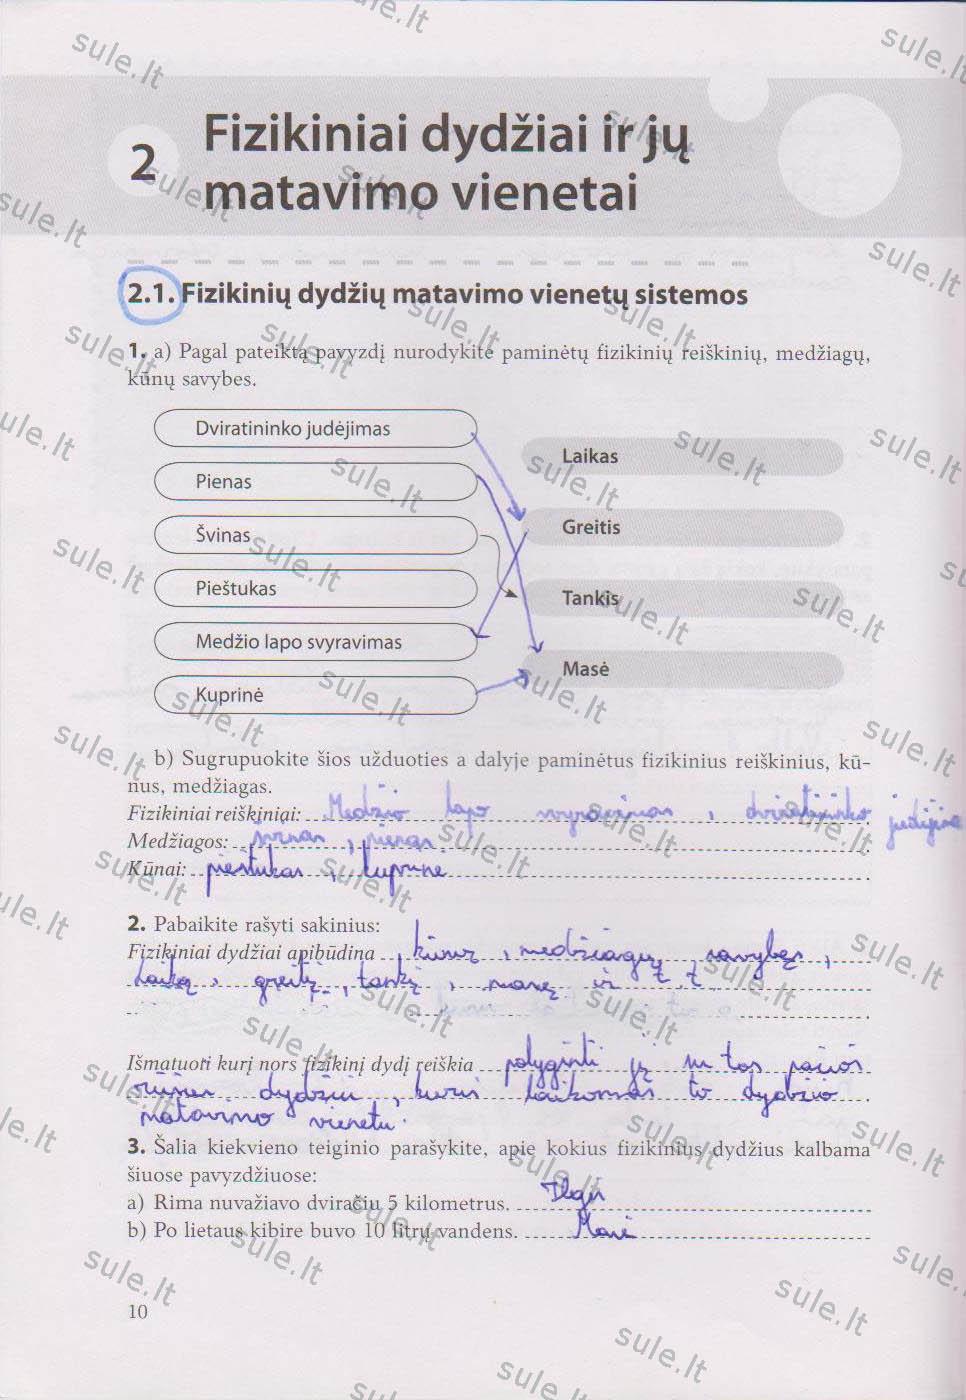 2
Fizikiniai dydžiai ir jų
matavimo vienetai
2.1. Fizikinių dydžių matavimo vienetų sistemos
1. a) Pagal pateiktą pavyzdį nurodykite paminėtų fizikinių reiškinių, medžiagų,
kūnų savybes.
Dviratininko judėjimas
Pienas
Švinas
Pieštukas
Medžio lapo svyravimas
Kuprinė
Laikas
Greitis
Tankis
Masė
b) Sugrupuokite šios užduoties a dalyje paminėtus fizikinius reiškinius, kū-
nus, medžiagas.
Fizikiniai reiškiniai: Medžio lapo svyravimas, dviratininko judėjimas
Medžiagos: švinas, pienas
Kūnai: pieštukas, kuprinė
2. Pabaikite rašyti sakinius:
Fizikiniai dydžiai apibūdina kūnų, medžiagų savybes,
laiką, greitį, tankį, masę ir t.t.
Išmatuoti kurį nors fizikinį dydį reiškia palyginti jį su tos pačios
rūšies dydžiu, kuris laikomas to dydžio
matavimo vienetu.
3. Šalia kiekvieno teiginio parašykite, apie kokius fizikinius dydžius kalbama
šiuose pavyzdžiuose:
a) Rima nuvažiavo dviračiu 5 kilometrus. Ilgis
b) Po lietaus kibire buvo 10 litrų vandens. Masė
10
sule.lt